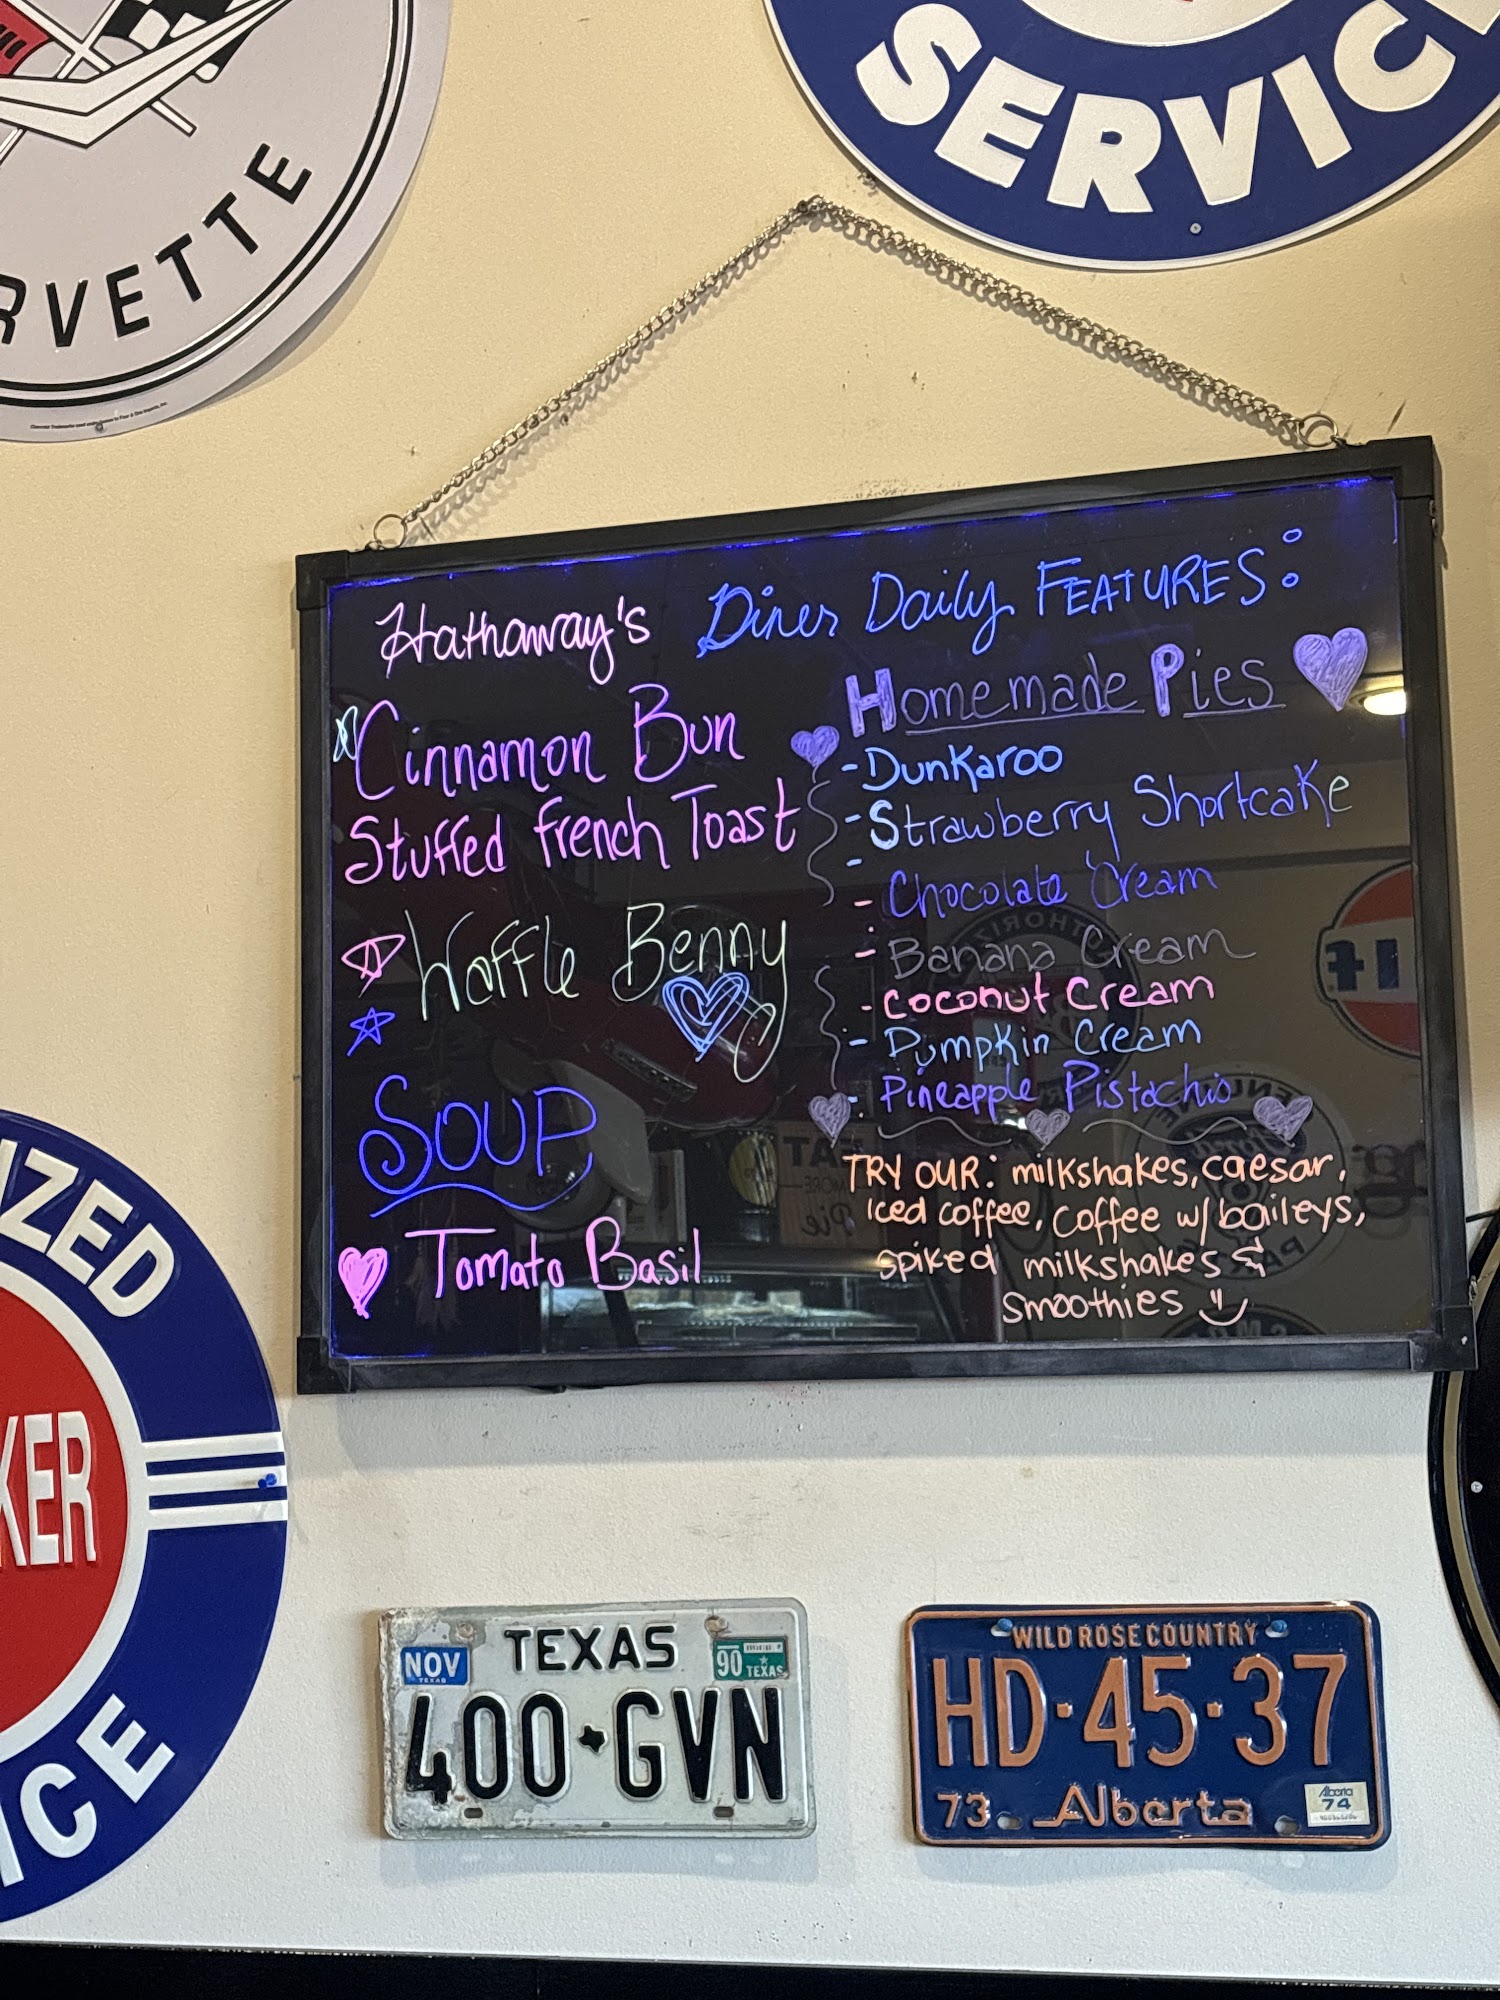 RVETTE
SERVIC
Hathaway's Diner Daily FEATURES:
Cinnamon Bun
Stuffed French Toast
Waffle Benny
SOUP
Tomato Basil
Homemade Pies
- Dunkaroo
- Strawberry Shortcake
-
- Chocolate Cream
- Banana Cream
- Coconut Cream
- Pumpkin Cream
- Pineapple Pistachio
TRY OUR: milkshakes, caesar,
Iced coffee, coffee w/ baileys,
spiked milkshakes &
smoothies
IZED
KER
ICE
NOV TEXAS 90
TEXAS TEXAS
400 GVN
WILD ROSE COUNTRY
HD·45·37
73 Alberta
Alberta
74